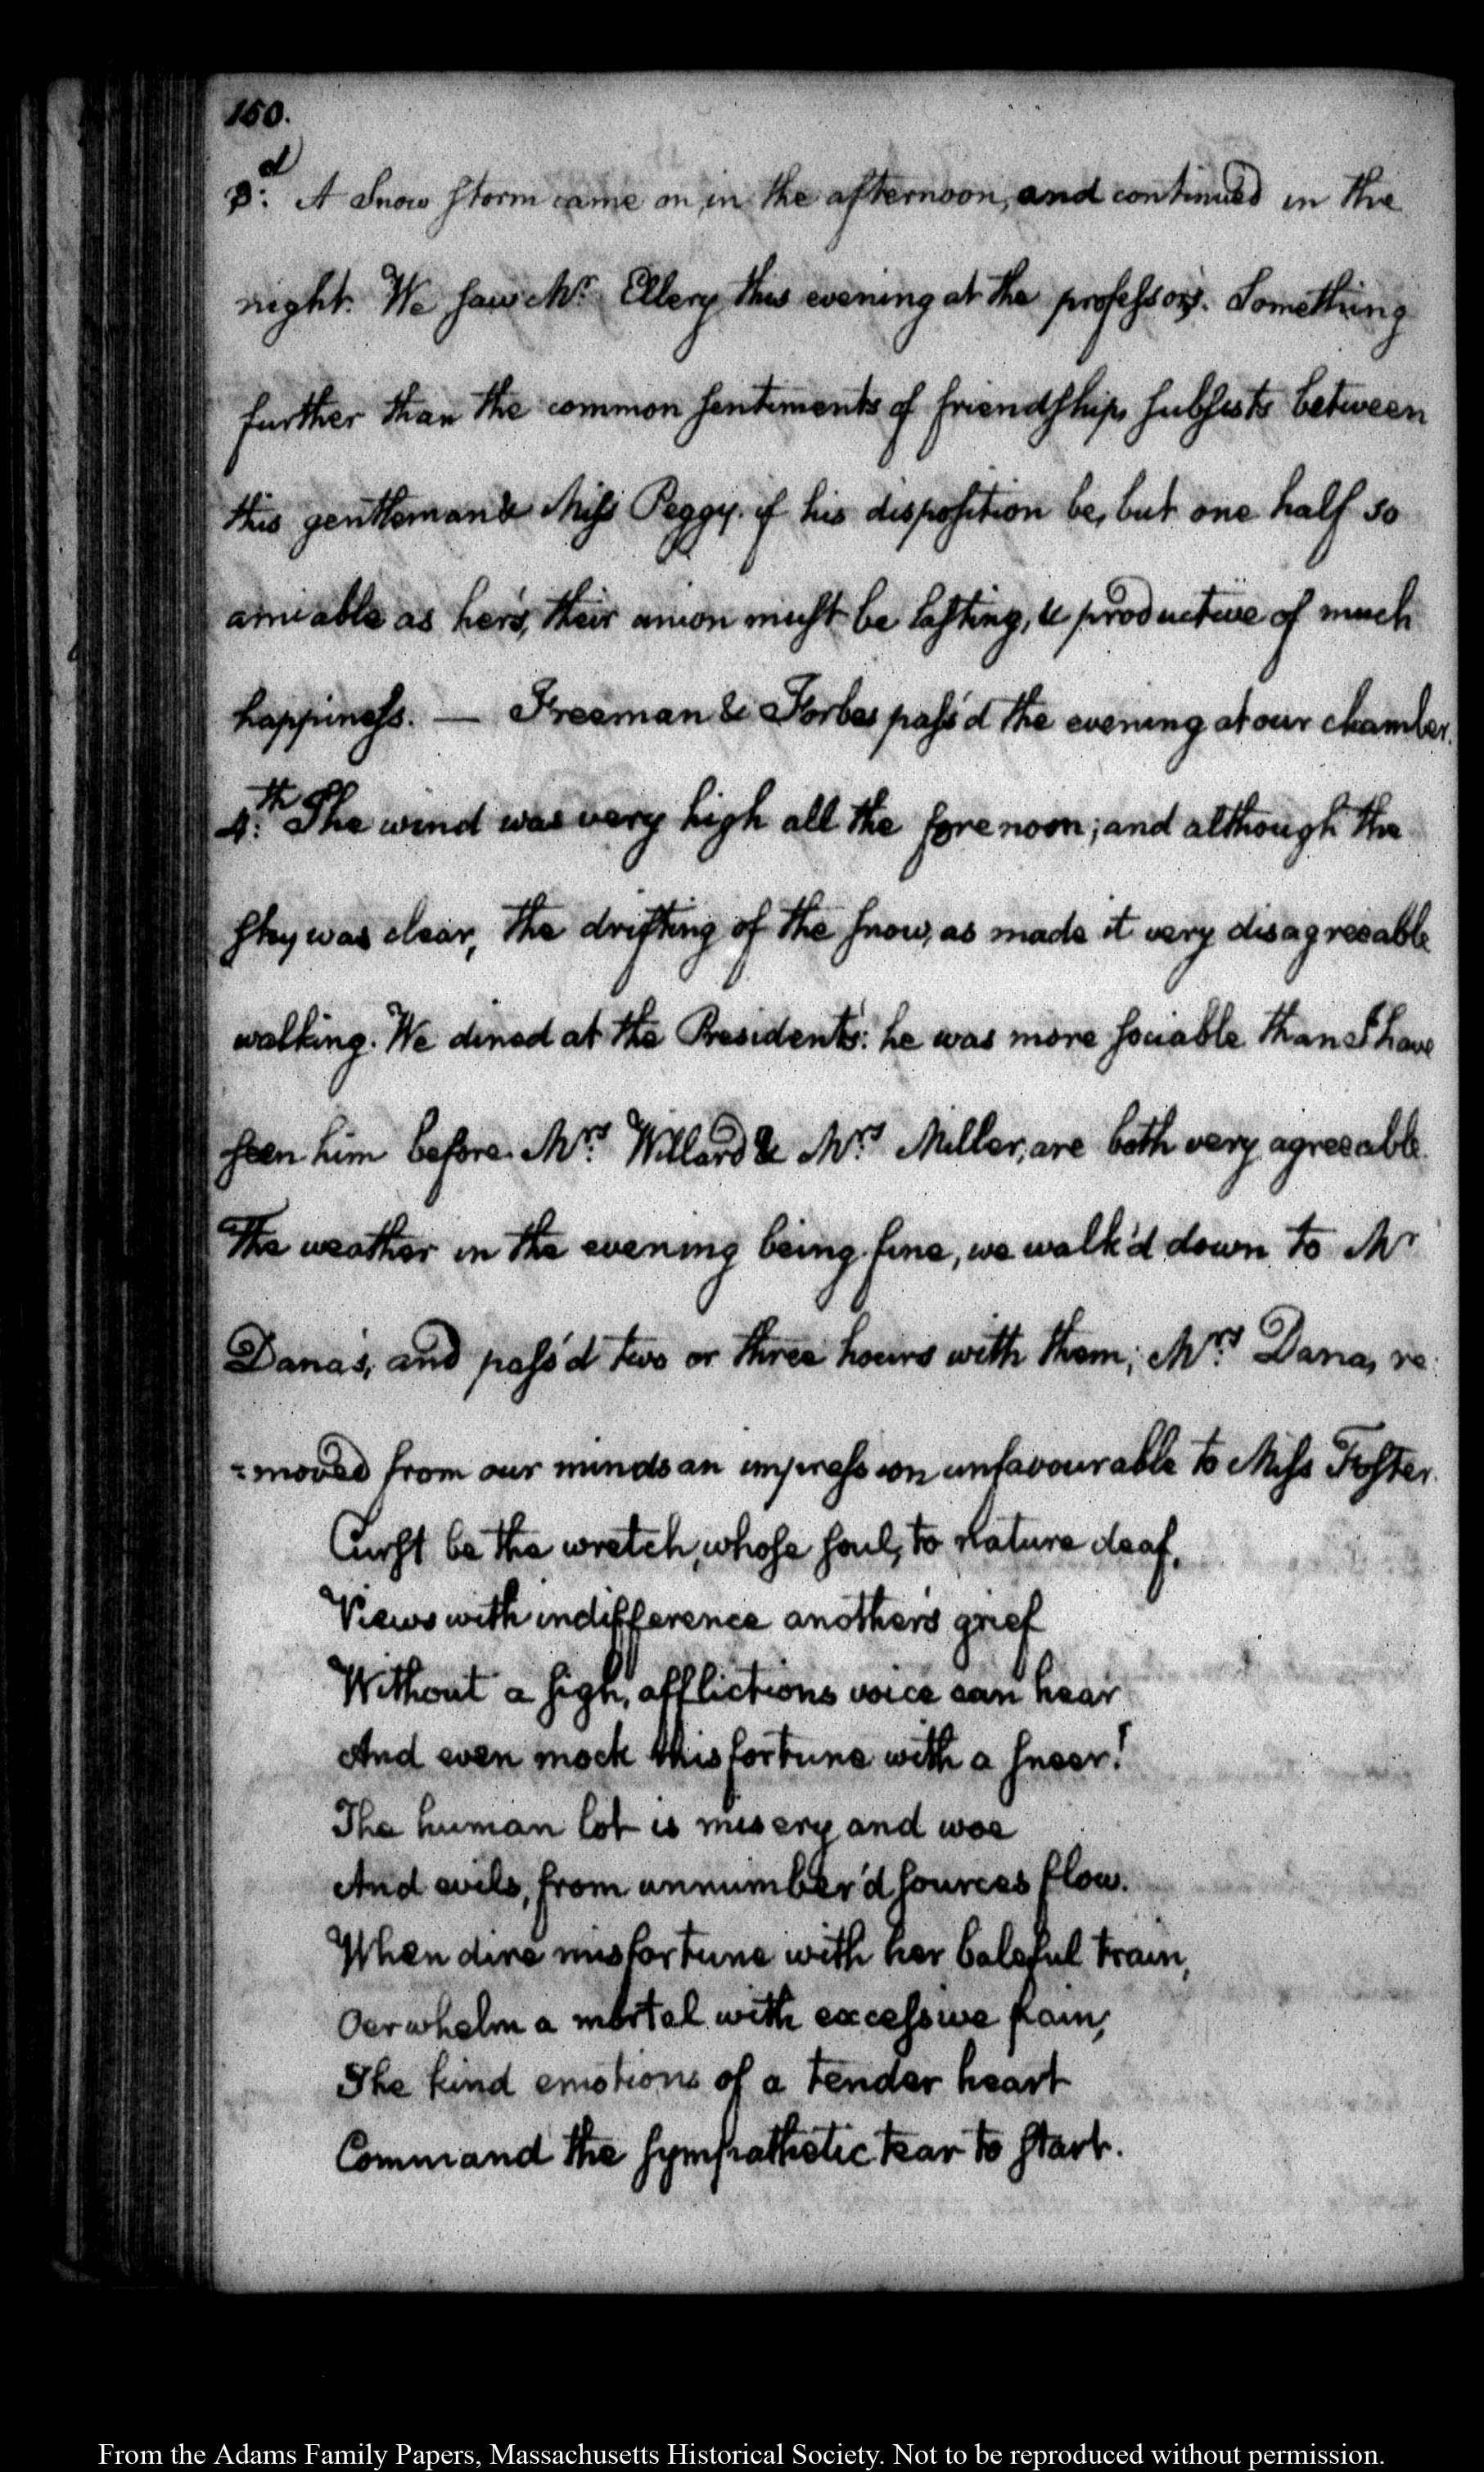 150.
3:d A Snow storm came on, in the afternoon, and continued in the
night. We saw Mr. Ellery this evening at the professor's. Something
further than the common sentiments of friendship, subsists between
this gentleman & Miss Peggy. if his disposition be, but one half so
amiable as her's, their union must be lasting, & productive of much
happiness. — Freeman & Forbes pass'd the evening at our chamber.
4:th The wind was very high all the forenoon; and although the
sky was clear, the drifting of the snow, as made it very disagreeable
walking. We dined at the President's: he was more sociable than I have
seen him before. Mrs. Willard & Mrs. Miller, are both very agreeable.
The weather in the evening being fine, we walk'd down to Mr
Dana's, and pass'd two or three hours with them; Mrs. Dana, re:
=moved from our minds an impression unfavourable to Miss Foster.
Curst be the wretch, whose soul, to nature deaf,
Views with indifference another's grief
Without a sigh, afflictions voice can hear
And even mock misfortune with a sneer!
The human lot is misery and woe
And evils, from unnumber'd sources flow.
When dire misfortune with her baleful train,
Oerwhelm a mortal with excessive pain,
The kind emotions of a tender heart
Command the sympathetic tear to start.
From the Adams Family Papers, Massachusetts Historical Society. Not to be reproduced without permission.